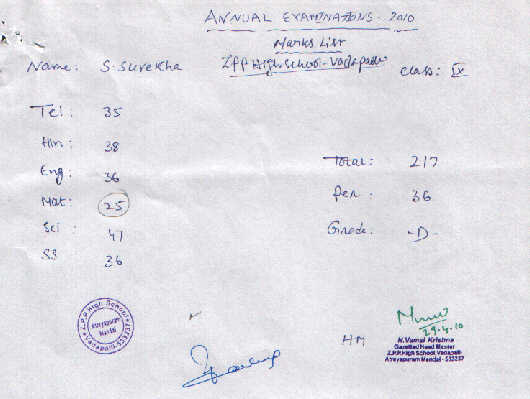 ANNUAL EXAMINATIONS - 2010
Marks List
Name: S. Surekha
Z.P.P High School - Vadapalli
class: IX
Tel: 35
Hin: 38
Eng: 36
Mat: 25
Sci: 47
SS 36
Total: 217
Per: 36
Grade: -D-
Z.P.P. High School
29.4.10
HM
N. Vamsi Krishna
Gazetted Head Master
Z.P.P. High School, Vadapalli
Atreyapuram Mandal - 533237